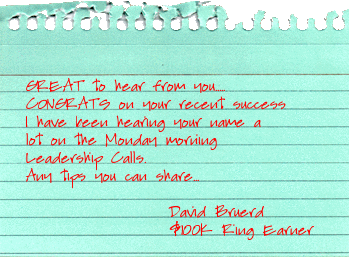 GREAT to hear from you.....
CONGRATS on your recent success
I have been hearing your name a
lot on the Monday morning
Leadership Calls.
Any tips you can share...
David Bruerd
$100K Ring Earner